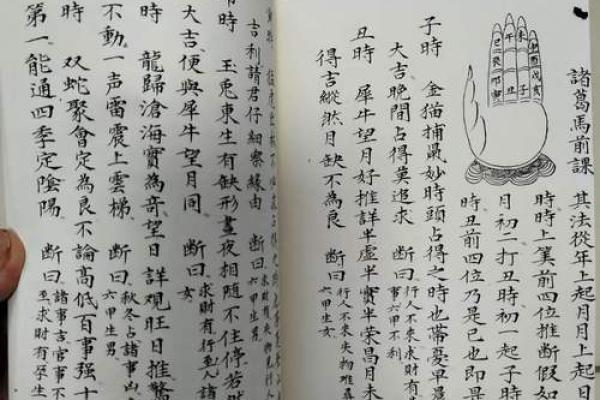 諸葛馬前課
其法從年上起月月上起日
時時上筭前四位推断假如
月初二打丑時初一起子時
時丑前四位乃是巳也即是
午
未
丑
子
子時 金猫捕鼠妙時頭占得之時也帶憂早晨
大吉晚間占得莫追求 断曰 行人不來求財有
事六甲不利
丑時 犀牛望月好推詳半虛半實半榮昌月未
得吉縱然月缺不為良 断曰 行人不來失物难尋
六甲生女
吉利請君仔細察緣由 断曰
六甲生男
時 玉兎東生有缺形晝夜相隨不住停若
大吉便與犀牛望月同 断曰 求財有行至人諸
女
時 龍歸滄海實為奇望日詳观旺日推驚
不動一声雷震上雲梯 断曰 秋冬占諸事凶
六甲生男
時 双蛇聚會定為良不論高低百事强十
第一能通四季定陰陽 断曰 諸事吉官事不
至求財有孕生